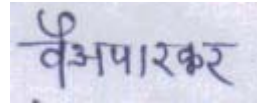 वैअपारकर